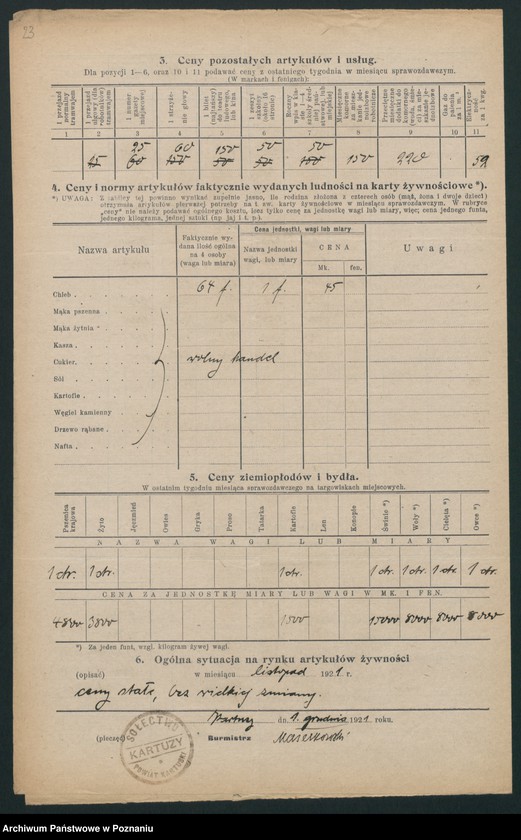 23
3. Ceny pozostałych artykułów i usług.
Dla pozycji 1—6, oraz 10 i 11 podawać ceny z ostatniego tygodnia w miesiącu sprawozdawczym.
(W markach i fenigach):
1 przejazd normalny tramwajem
1 przejazd ulgowy (dla robotników) tramwajem
1 numer gazety miejscowej
1 strzyżenie głowy
1 zeszyt szkolny
1 2 3 4 5 6 7 8 9 10 11
25 60 150 50 50
45 60 150 50 50 100 150 220 59
4. Ceny i normy artykułów faktycznie wydanych ludności na karty żywnościowe *).
*) UWAGA: Z tablicy tej powinno wynikać zupełnie jasno, ile rodzina złożona z czterech osób (mąż, żona i dwoje dzieci)
otrzymała artykułów pierwszej potrzeby na t. zw. karty żywnościowe w miesiącu sprawozdawczym. W rubryce
„ceny" nie należy podawać ogólnego kosztu, lecz tylko cenę za jednostkę wagi lub miary, więc; cenę jednego funta,
jednego kilograma, jednej sztuki (np. jaj i t. p.)
Nazwa artykułu
Faktycznie wydana ilość ogólna na 4 osoby (waga lub miara)
Cena jednostki, wagi lub miary
Nazwa jednostki wagi, lub miary
CENA
Mk. fen.
Uwagi
Chleb 64 f. 1 f. 45
Mąka pszenna
Mąka żytnia
Kasza
Cukier wolny handel
Sól
Kartofle
Węgiel kamienny
Drzewo rąbane
Nafta
5. Ceny ziemiopłodów i bydła.
W ostatnim tygodniu miesiąca sprawozdawczego na targowiskach miejscowych.
Pszenica krajowa Żyto Jęczmień Owies Gryka Proso Tatarka Kartofle Len Konopie Świnie *) Woły *) Cielęta *) Owce *)
NAZWA WAGI LUB MIARY
1 ctr. 1 ctr. 1 ctr. 1 ctr. 1 ctr. 1 ctr. 1 ctr.
CENA ZA JEDNOSTKĘ MIARY LUB WAGI W MK. I FEN.
4800 3800 1500 15000 8000 8000 8000
*) Za jeden funt, wzgl. kilogram żywej wagi.
6. Ogólna sytuacja na rynku artykułów żywności
(opisać) w miesiącu listopad 1921 r.
ceny stałe, bez wielkiej zmiany.
Kartuzy dn. 1. grudnia 1921 roku.
(pieczęć) Burmistrz
SOŁECTWO
KARTUZY
POWIAT KARTUSKI
Archiwum Państwowe w Poznaniu